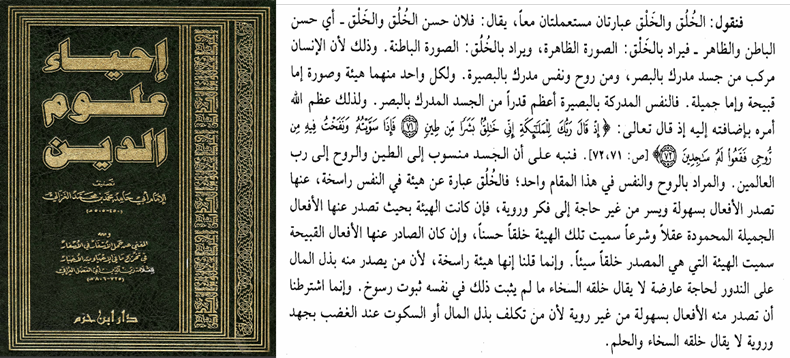 إحياء
علوم
الدين
تصنيف
الإمام أبي حامد محمد بن محمد الغزالي
دار ابن حزم
فنقول: الخُلُق والخَلْق عبارتان مستعملتان معاً، يقال: فلان حسن الخُلُق والخَلْق ـ أي حسن
الباطن والظاهر ـ فيراد بالخَلْق: الصورة الظاهرة، ويراد بالخُلُق: الصورة الباطنة. وذلك لأن الإنسان
مركب من جسد مدرك بالبصر، ومن روح ونفس مدرك بالبصيرة. ولكل واحد منهما هيئة وصورة إما
قبيحة وإما جميلة. فالنفس المدركة بالبصيرة أعظم قدراً من الجسد المدرك بالبصر. ولذلك عظم الله
أمره بإضافته إليه إذ قال تعالى: ﴿إِذْ قَالَ رَبُّكَ لِلْمَلَٰٓئِكَةِ إِنِّي خَٰلِقٌۢ بَشَرًا مِّن طِينٍ ﴿٧١﴾ فَإِذَا سَوَّيْتُهُۥ وَنَفَخْتُ فِيهِ مِن
رُّوحِي فَقَعُوا۟ لَهُۥ سَٰجِدِينَ ﴿٧٢﴾﴾ [ص: ٧١، ٧٢]. فنبه على أن الجسد منسوب إلى الطين والروح إلى رب
العالمين. والمراد بالروح والنفس في هذا المقام واحد؛ فالخُلُق عبارة عن هيئة في النفس راسخة، عنها
تصدر الأفعال بسهولة ويسر من غير حاجة إلى فكر وروية، فإن كانت الهيئة بحيث تصدر عنها الأفعال
الجميلة المحمودة عقلاً وشرعاً سميت تلك الهيئة خلقاً حسناً، وإن كان الصادر عنها الأفعال القبيحة
سميت الهيئة التي هي المصدر خلقاً سيئاً. وإنما قلنا إنها هيئة راسخة، لأن من يصدر منه بذل المال
على الندور لحاجة عارضة لا يقال خلقه السخاء ما لم يثبت ذلك في نفسه ثبوت رسوخ. وإنما اشترطنا
أن تصدر منه الأفعال بسهولة من غير روية لأن من تكلف بذل المال أو السكوت عند الغضب بجهد
وروية لا يقال خلقه السخاء والحلم.